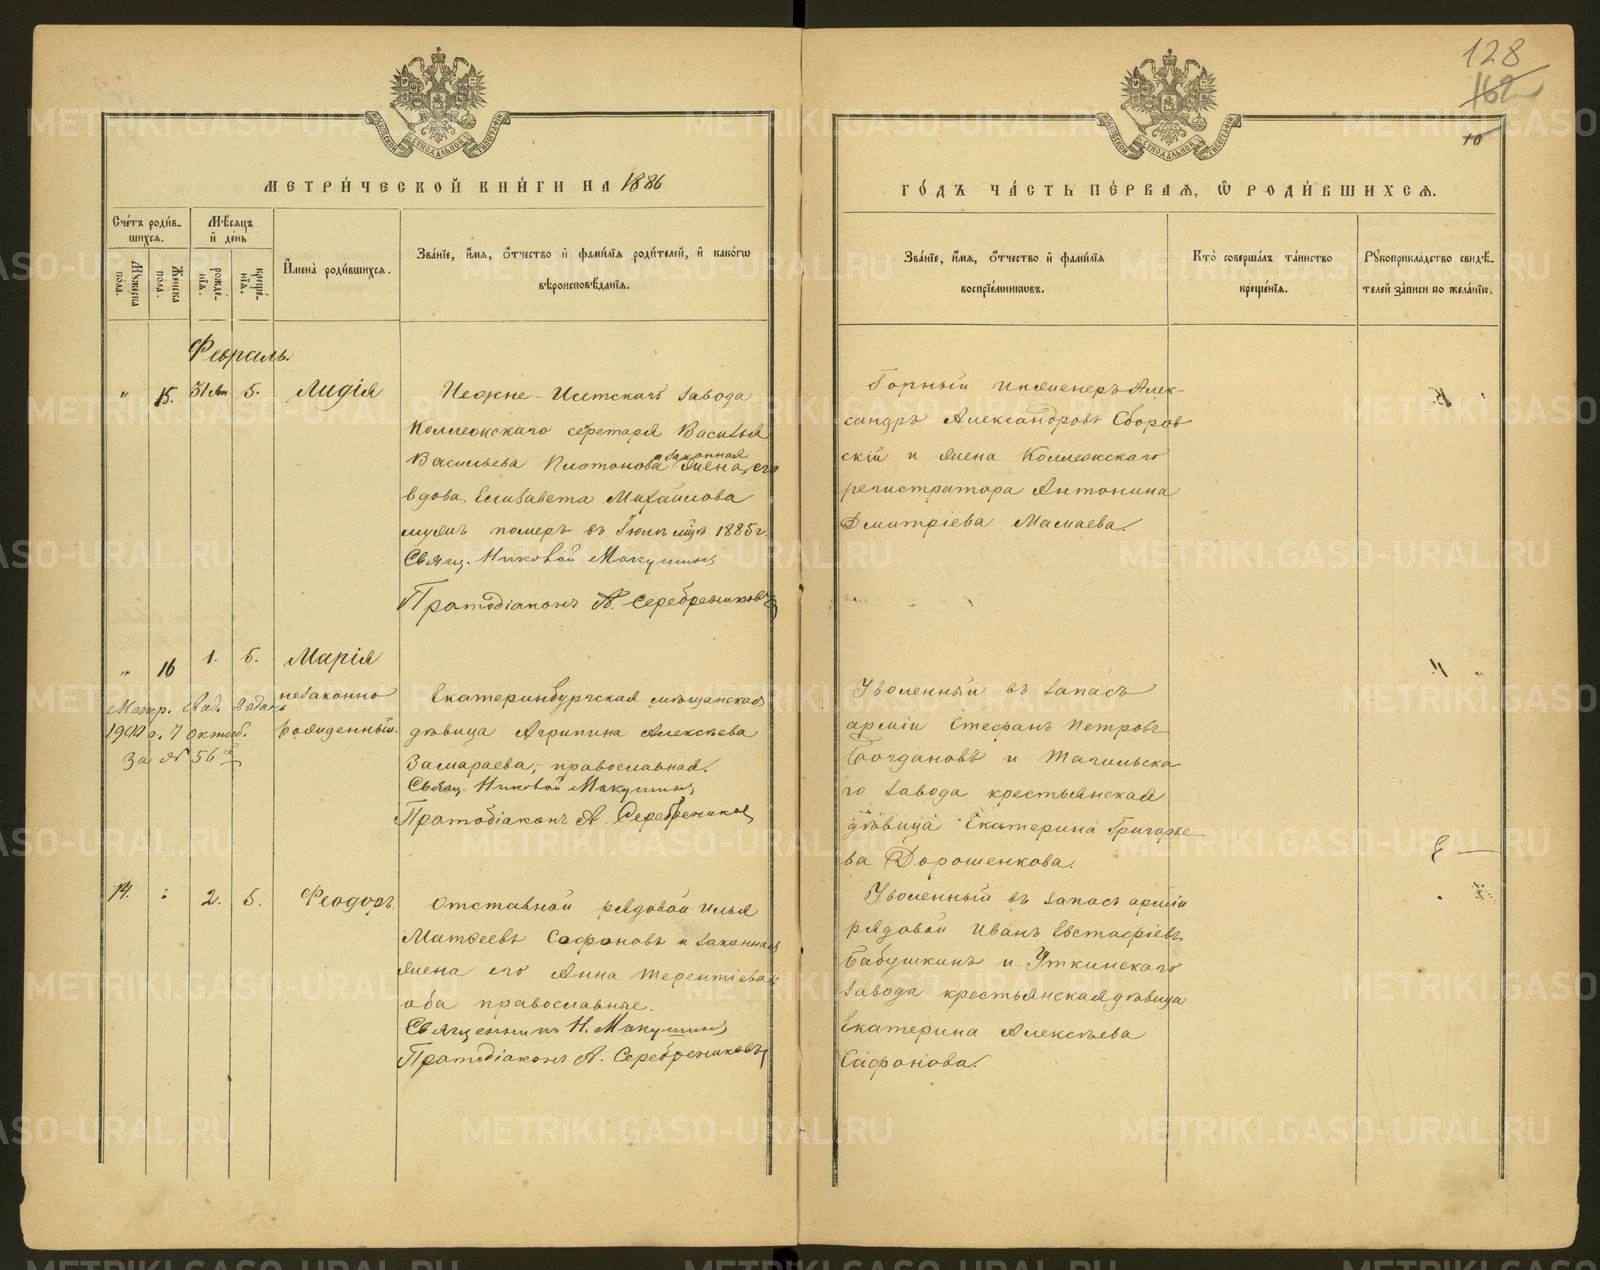 128
162
10
МОСКОВСКОЙ СѴНОДАЛЬНОЙ ТИПОГРАФІИ
МОСКОВСКОЙ СѴНОДАЛЬНОЙ ТИПОГРАФІИ
МЕТРИ́ЧЕСКОЙ КНИ́ГИ НА 1886
ГО́ДЪ ЧА́СТЬ ПЕ́РВАЯ, Ѡ РОДИ́ВШИХСЯ.
Сче́тъ роди́в-
шихся.
Мѣ́сяцъ
и҆ де́нь
Мꙋжеска
пола.
Женска
пола.
рожде́-
нїя.
креще́-
нїя.
И҆мена̀ роди́вшихся.
Зва́нїе, и҆́мя, ѻ҆́тчество и҆ фами́лїя роди́телей, и҆ како́гѡ
вѣроисповѣ́данїя.
Зва́нїе, и҆́мя, ѻ҆́тчество и҆ фами́лїя
воспрїе́мникѡвъ.
Кто̀ соверша́лъ та́инство
креще́нїя.
Рꙋкоприкла́дство свидѣ́-
телей за́писи по жела́нїю.
Февраль.
" 15. 31 Ян 5. Лидія
Нежне-Исетскаго завода
Коллежскаго секретаря Василья
Васильева Платонова законная
жена, его
вдова Елизавета Михайлова
мужъ померъ въ Іюлѣ мцѣ 1885 г.
Свящ. Николай Макушинъ
Протодіаконъ А. Серебренниковъ
Горный инженеръ Алек-
сандръ Александровъ Сборов
скій и жена Коллежскаго
регистратора Антонина
Дмитріева Мамаева.
" 16 1. 5. Марія
незаконно
рожденный.
Метр. выд.
1900 г. 7 октяб.
за № 56
Екатеринбургская мѣщанская
дѣвица Агрипина Алексѣева
Замараева, православная.
Свящ. Николай Макушинъ
Протодіаконъ А. Серебренников
Уволенный въ запасъ
арміи Стефанъ Петровъ
Богдановъ и Тагильска
го завода крестьянская
дѣвица Екатерина Григорье-
ва Дорошенкова.
14. " 2. 5. Феодоръ
Отставной рядовой Илья
Матѳеевъ Сафоновъ и законная
жена его Анна Терентіева
оба православные.
Священникъ Н. Макушинъ
Протодіаконъ А. Серебренниковъ
Уволенный въ запасъ арміи
рядовой Иванъ Евстафіевъ
Бабушкинъ и Уткинскаго
завода крестьянская дѣвица
Екатерина Алексѣева
Сафонова.
METRIKI.GASO-URAL.RU